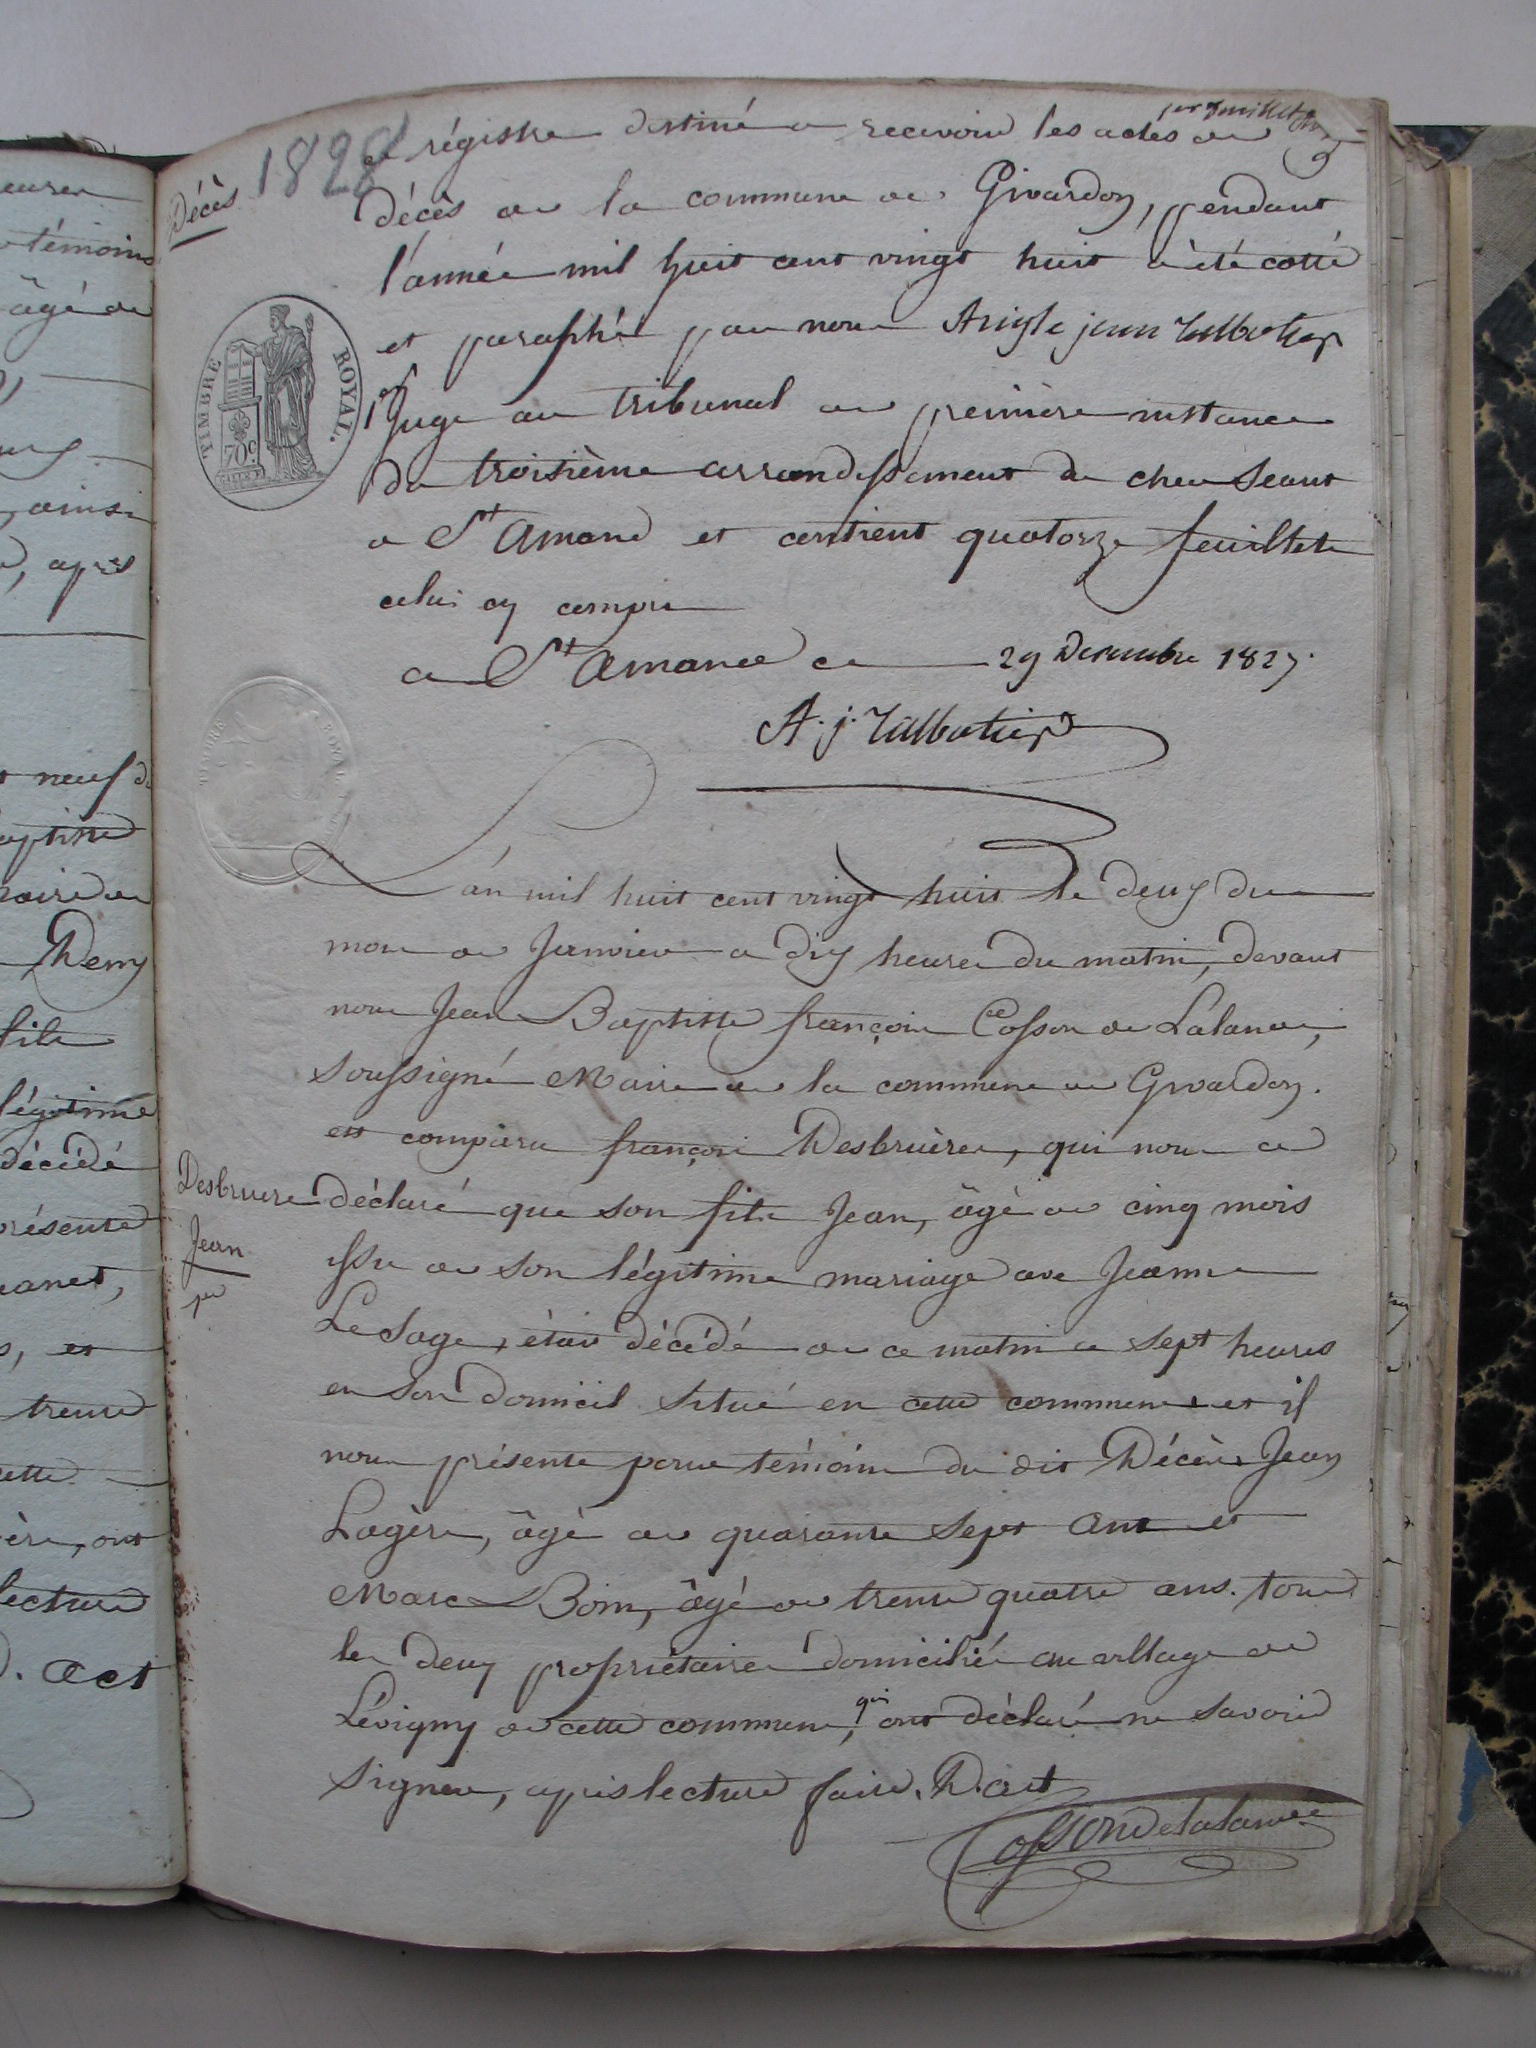 1er feuillet
1828
Décès
Ce régistre destiné a recevoir les actes de
décès de la commune de Givardon, pendant
l'année mil huit cent vingt huit à été cotté
et paraphé par nous Arigle jean Talbotier
1er Juge au tribunal de première instance
du troisième arrondissement du cher Seant
a St Amand et contient quatorze feuillets
celui cy compris
a St Amand ce 29 Decembre 1827.
A. j. Talbotier
TIMBRE ROYAL.
70c
L'an mil huit cent vingt huit le deux du
mois de Janvier a dix heures du matin, devant
nous Jean Baptiste françois Cosson de Lalande,
soussigné Maire de la commune de Givardon.
est comparu françois Desbruères, qui nous a
Desbruere
Jean
1er
déclaré que son fils Jean, âgé de cinq mois
issu de son légitime mariage avec Jeanne
LeSage, était décédé de ce matin a sept heures
en son domicil situé en cette commune et il
nous présente pour témoins du dit Décès Jean
Lagère, âgé de quarante sept ans et
Marc Boin, âgé de trente quatre ans. tous
les deux propriétaires domiciliés au village de
Lévigny de cette commune, qui ont déclaré ne savoir
signer, après lecture faite. D. act
Cosson de lalande
TIMBRE ROYAL
témoins
âgé de
ainsi
après
neuf d
Demy
fils
légitime
décédé
présente
et
trente
ont
lecture
D. act